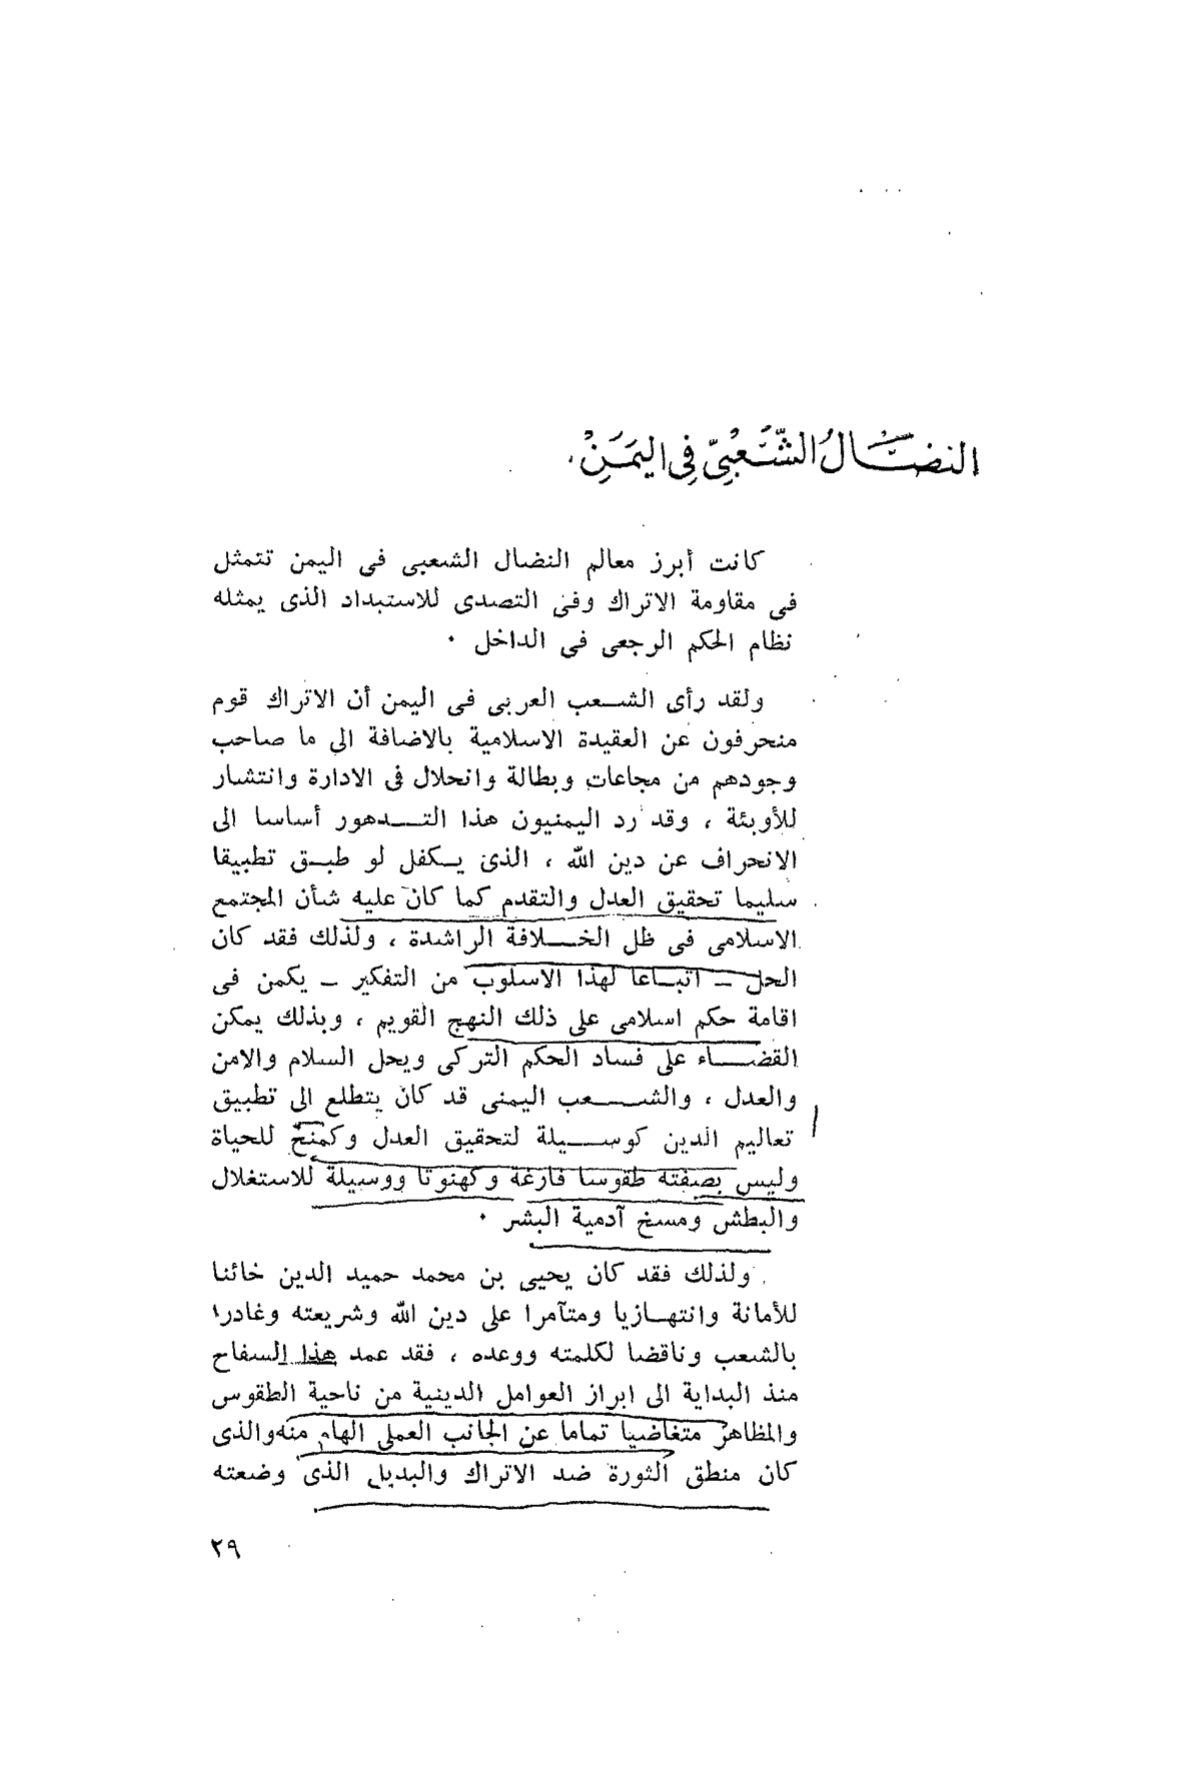 النضَالُ الشَّعْبِيّ فِي اليَمَنْ
كانت أبرز معالم النضال الشعبى فى اليمن تتمثل
فى مقاومة الاتراك وفى التصدى للاستبداد الذى يمثله
نظام الحكم الرجعى فى الداخل .
ولقد رأى الشعب العربى فى اليمن أن الاتراك قوم
منحرفون عن العقيدة الاسلامية بالاضافة الى ما صاحب
وجودهم من مجاعات وبطالة وانحلال فى الادارة وانتشار
للأوبئة ، وقد رد اليمنيون هذا التدهور أساسا الى
الانحراف عن دين الله ، الذى يكفل لو طبق تطبيقا
سليما تحقيق العدل والتقدم كما كان عليه شأن المجتمع
الاسلامى فى ظل الخلافة الراشدة ، ولذلك فقد كان
الحل – اتباعا لهذا الاسلوب من التفكير – يكمن فى
اقامة حكم اسلامى على ذلك النهج القويم ، وبذلك يمكن
القضاء على فساد الحكم التركى ويحل السلام والامن
والعدل ، والشعب اليمنى قد كان يتطلع الى تطبيق
تعاليم الدين كوسيلة لتحقيق العدل وكمنح للحياة
وليس بصفته طقوسا فارغة وكهنوتا ووسيلة للاستغلال
والبطش ومسخ آدمية البشر .
ولذلك فقد كان يحيى بن محمد حميد الدين خائنا
للأمانة وانتهازيا ومتآمرا على دين الله وشريعته وغادرا
بالشعب وناقضا لكلمته ووعده ، فقد عمد هذا السفاح
منذ البداية الى ابراز العوامل الدينية من ناحية الطقوس
والمظاهر متغاضيا تماما عن الجانب العملى الهام منه والذى
كان منطق الثورة ضد الاتراك والبديل الذى وضعته
٢٩